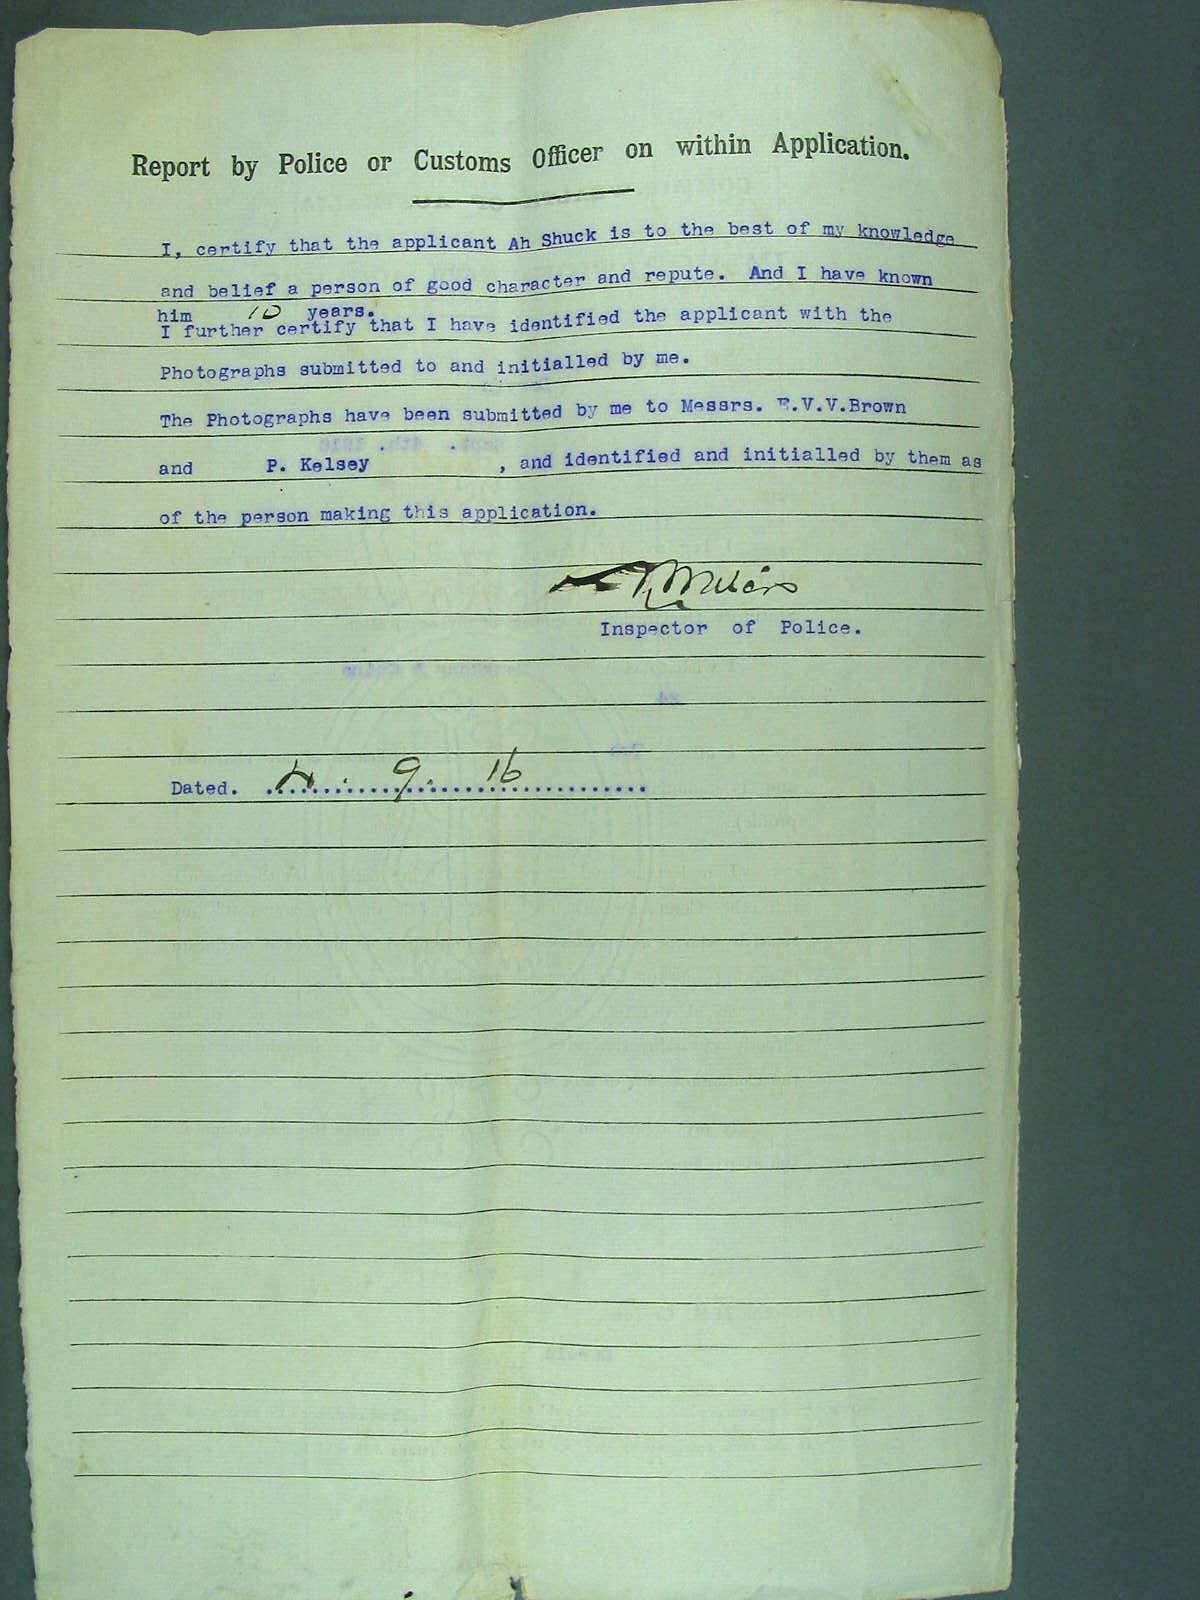 Report by Police or Customs Officer on within Application.
I, certify that the applicant Ah Shuck is to the best of my knowledge
and belief a person of good character and repute. And I have known
him 10 years.
I further certify that I have identified the applicant with the
Photographs submitted to and initialled by me.
The Photographs have been submitted by me to Messrs. E.V.V.Brown
and P. Kelsey , and identified and initialled by them as
of the person making this application.
Inspector of Police.
Dated. 4 . 9 . 16